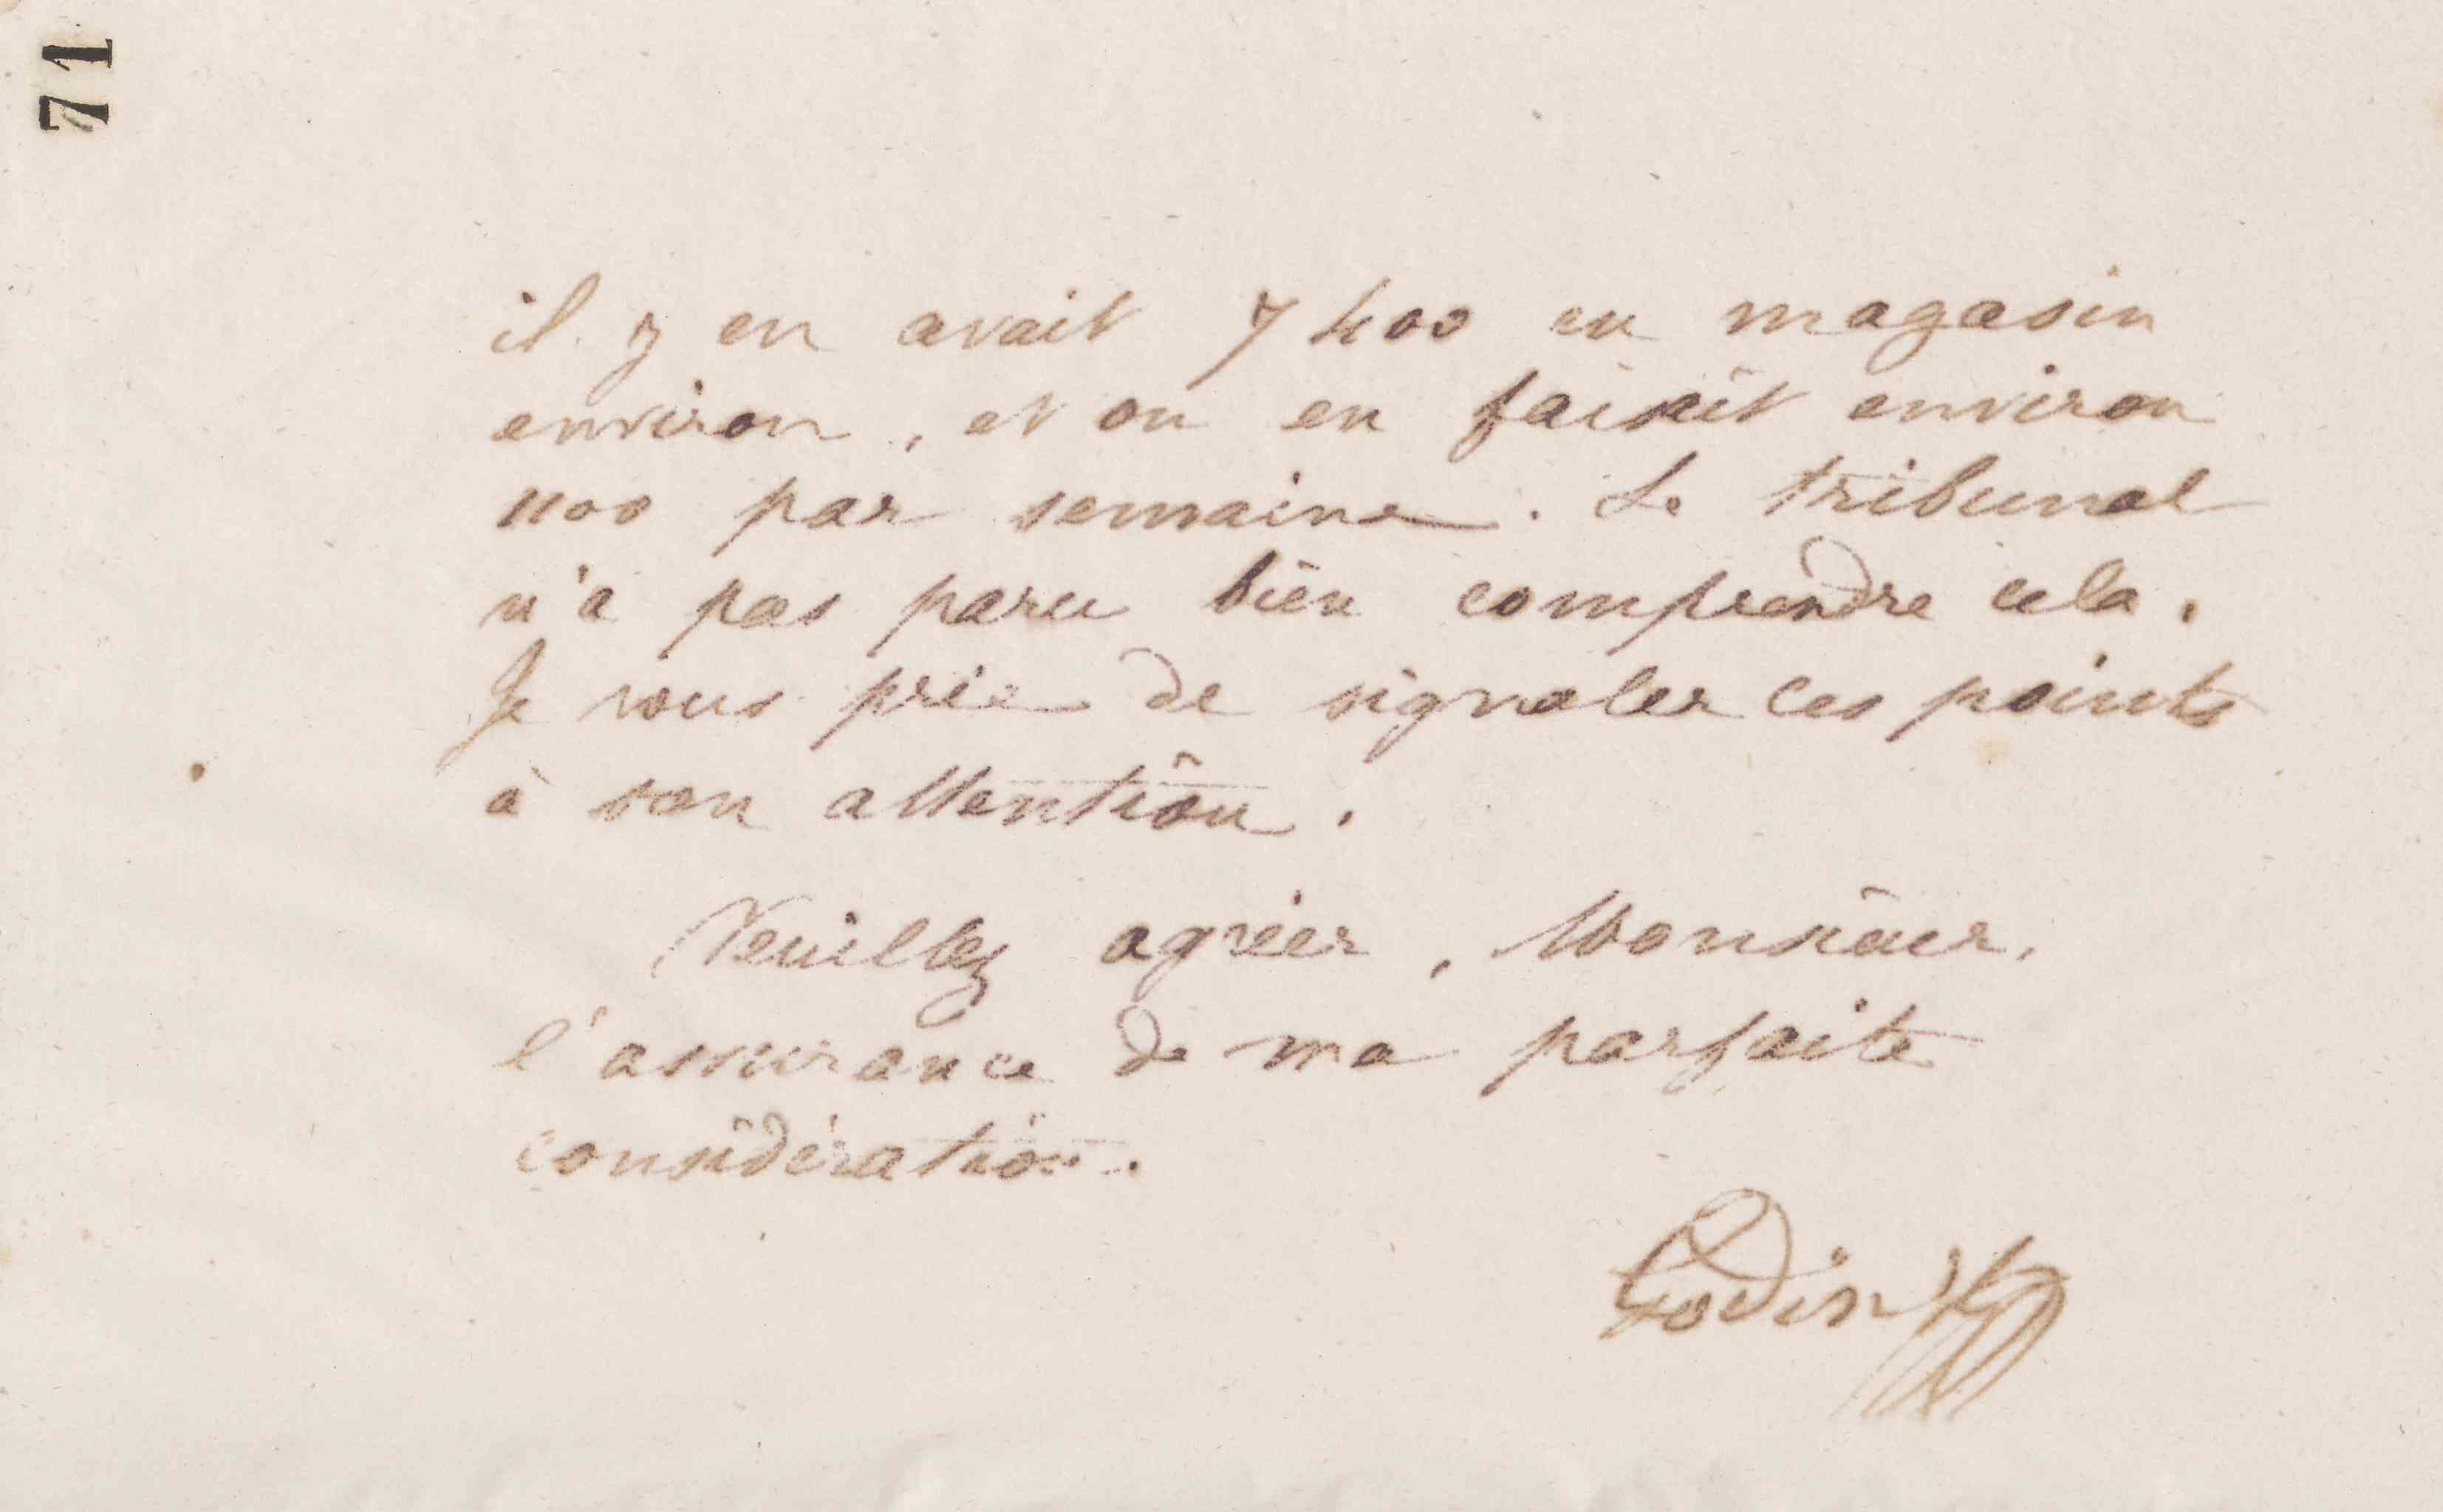 71
il y en avait 7400 en magasin
environ, et on en faisait environ
1100 par semaine. Le tribunal
n'a pas paru bien comprendre cela.
Je vous prie de signaler ces points
à son attention.
Veuillez agréer, Monsieur,
l'assurance de ma parfaite
considération.
Godin